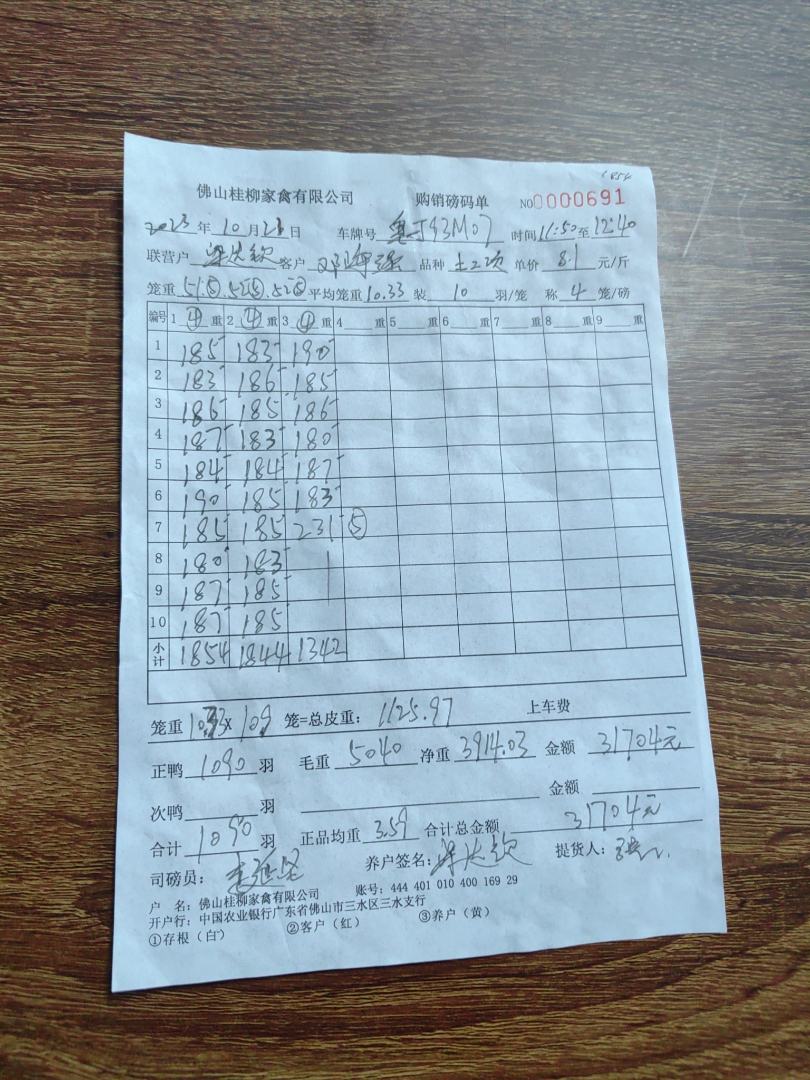 1854
佛山桂柳家禽有限公司 购销磅码单 NO0000691
2023年10月21日 车牌号 粤J93M07 时间11:50至12:40
联营户 客户 品种 土2次 单价 8.1 元/斤
笼重 51⑤.52⑤.52⑤ 平均笼重 10.33 装 10 羽/笼 称 4 笼/磅
编号 1 ④ 重 2 ④ 重 3 ④ 重 4 重 5 重 6 重 7 重 8 重 9 重
1 185 183 190
2 183 186 185
3 186 185 186
4 187 183 180
5 184 184 187
6 190 185 183
7 185 185 231 ⑤
8 180 183
9 187 185
10 187 185
小计 1854 1844 1342
笼重 10.33 x 109 笼=总皮重: 1125.97 上车费
正鸭 1090 羽 毛重 5040 净重 3914.03 金额 31704元
次鸭 羽 金额
合计 1090 羽 正品均重 3.59 合计总金额 31704元
司磅员: 养户签名: 提货人:
户 名: 佛山桂柳家禽有限公司 账号: 444 401 010 400 169 29
开户行: 中国农业银行广东省佛山市三水区三水支行
①存根(白) ②客户(红) ③养户(黄)